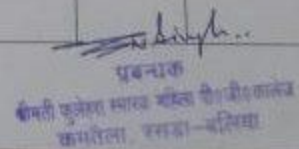 N Singh..
प्रबन्धक
श्रीमती फुलेहरा स्मारक महिला पी०जी०कालेज
कमतैला, रसड़ा-बलिया